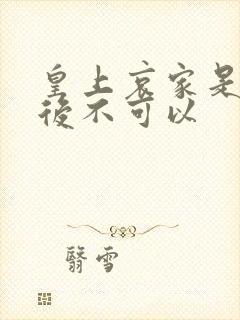 皇上哀家是
後不可以
翳雪